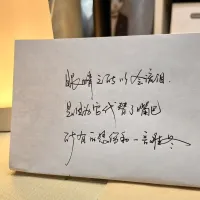 眼睛之所以会流泪
是因为它代替了嘴巴
所有的想念和一言难尽